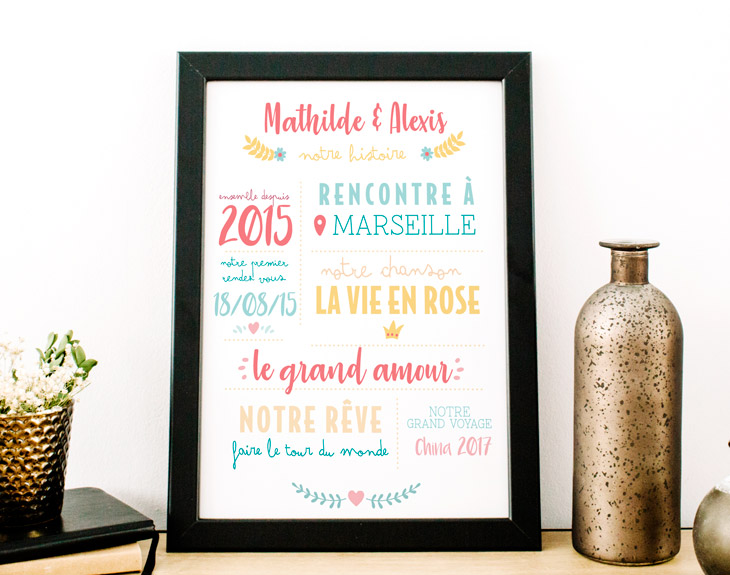 Mathilde & Alexis
notre histoire
ensemble depuis
2015
notre premier
rendez vous
18/08/15
RENCONTRE À
MARSEILLE
notre chanson
LA VIE EN ROSE
le grand amour
NOTRE RÊVE
faire le tour du monde
NOTRE
GRAND VOYAGE
China 2017